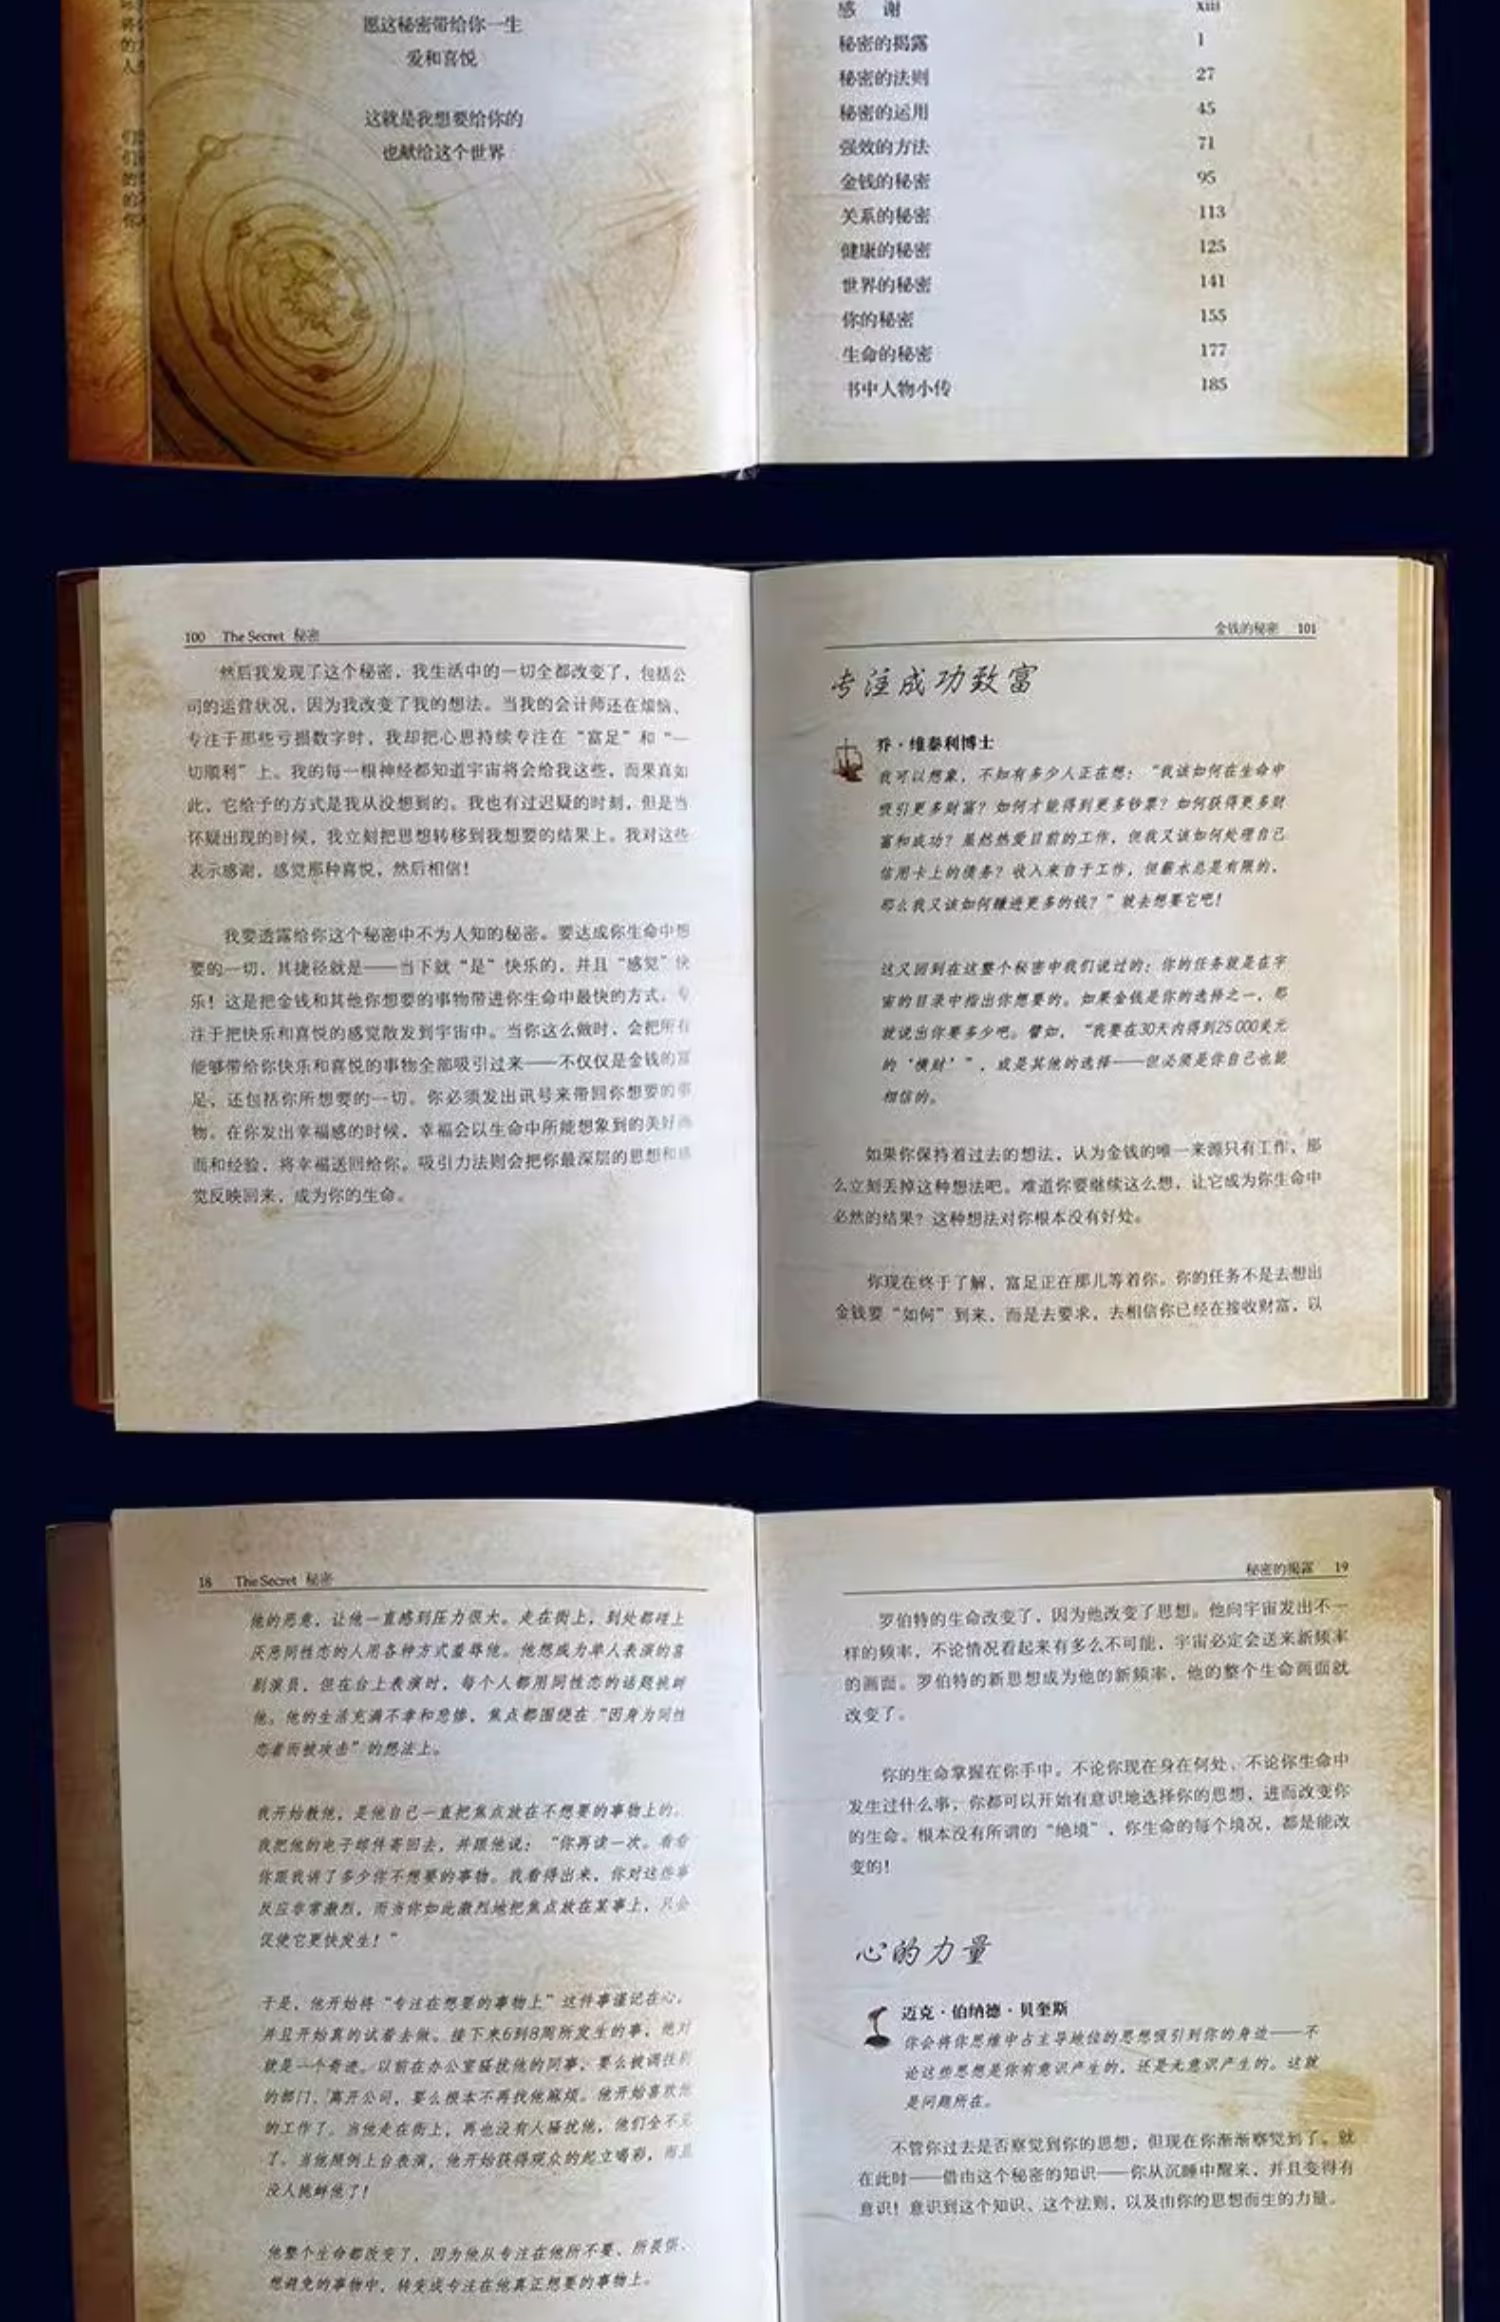 愿这秘密带给你一生
爱和喜悦
这就是我想要给你的
也献给这个世界
感 谢 xiii
秘密的揭露 1
秘密的法则 27
秘密的运用 45
强效的方法 71
金钱的秘密 95
关系的秘密 113
健康的秘密 125
世界的秘密 141
你的秘密 155
生命的秘密 177
书中人物小传 185
100 The Secret 秘密
然后我发现了这个秘密，我生活中的一切全都改变了，包括公
司的运营状况，因为我改变了我的想法。当我的会计师还在烦恼、
专注于那些亏损数字时，我却把心思持续专注在“富足”和“一
切顺利”上。我的每一根神经都知道宇宙将会给我这些，而果真如
此，它给予的方式是我从没想到的。我也有过迟疑的时刻，但是当
怀疑出现的时候，我立刻把思想转移到我想要的结果上。我对这些
表示感谢，感觉那种喜悦，然后相信！
我要透露给你这个秘密中不为人知的秘密。要达成你生命中想
要的一切，其捷径就是——当下就“是”快乐的，并且“感觉”快
乐！这是把金钱和其他你想要的事物带进你生命中最快的方式。专
注于把快乐和喜悦的感觉散发到宇宙中。当你这么做时，会把所有
能够带给你快乐和喜悦的事物全部吸引过来——不仅仅是金钱的富
足，还包括你所想要的一切。你必须发出讯号来带回你想要的事
物。在你发出幸福感的时候，幸福会以生命中所能想象到的美好画
面和经验，将幸福送回给你。吸引力法则会把你最深层的思想和感
觉反映回来，成为你的生命。
金钱的秘密 101
专注成功致富
乔·维泰利博士
我可以想象，不知有多少人正在想：“我该如何在生命中
吸引更多财富？如何才能得到更多钞票？如何获得更多财
富和成功？虽然热爱目前的工作，但我又该如何处理自己
信用卡上的债务？收入来自于工作，但薪水总是有限的，
那么我又该如何赚进更多的钱？”就去想要它吧！
这又回到在这整个秘密中我们说过的：你的任务就是在宇
宙的目录中指出你想要的。如果金钱是你的选择之一，那
就说出你要多少吧。譬如，“我要在30天内得到25 000美元
的‘横财’”，或是其他的选择——但必须是你自己也能
相信的。
如果你保持着过去的想法，认为金钱的唯一来源只有工作，那
么立刻丢掉这种想法吧。难道你要继续这么想，让它成为你生命中
必然的结果？这种想法对你根本没有好处。
你现在终于了解，富足正在那儿等着你。你的任务不是去想出
金钱要“如何”到来，而是去要求，去相信你已经在接收财富，以
18 The Secret 秘密
他的恶意，让他一直感到压力很大。走在街上，到处都碰上
厌恶同性恋的人用各种方式羞辱他。他想成为单人表演的喜
剧演员，但在台上表演时，每个人都用同性恋的话题挑衅
他。他的生活充满不幸和悲惨，焦点都围绕在“因身为同性
恋者而被攻击”的想法上。
我开始教他，是他自己一直把焦点放在不想要的事物上的。
我把他的电子邮件寄回去，并跟他说：“你再读一次。看看
你跟我讲了多少你不想要的事物。我看得出来，你对这些事
反应非常激烈，而当你如此激烈地把焦点放在某事上，只会
促使它更快发生！”
于是，他开始将“专注在想要的事物上”这件事谨记在心，
并且开始真的试着去做。接下来6到8周所发生的事，绝对
就是一个奇迹。以前在办公室骚扰他的同事，要么被调往别
的部门、离开公司，要么根本不再找他麻烦。他开始喜欢他
的工作了。当他走在街上，再也没有人骚扰他，他们全不见
了。当他照例上台表演，他开始获得观众的起立喝彩，而且
没人挑衅他了！
他整个生命都改变了，因为他从专注在他所不要、所畏惧、
想避免的事物中，转变成专注在他真正想要的事物上。
秘密的揭露 19
罗伯特的生命改变了，因为他改变了思想。他向宇宙发出不一
样的频率，不论情况看起来有多么不可能，宇宙必定会送来新频率
的画面。罗伯特的新思想成为他的新频率，他的整个生命画面就
改变了。
你的生命掌握在你手中。不论你现在身在何处、不论你生命中
发生过什么事，你都可以开始有意识地选择你的思想，进而改变你
的生命。根本没有所谓的“绝境”，你生命的每个境况，都是能改
变的！
心的力量
迈克·伯纳德·贝奎斯
你会将你思维中占主导地位的思想吸引到你的身边——不
论这些思想是你有意识产生的，还是无意识产生的。这就
是问题所在。
不管你过去是否察觉到你的思想，但现在你渐渐察觉到了。就
在此时——借由这个秘密的知识——你从沉睡中醒来，并且变得有
意识！意识到这个知识、这个法则，以及由你的思想而生的力量。